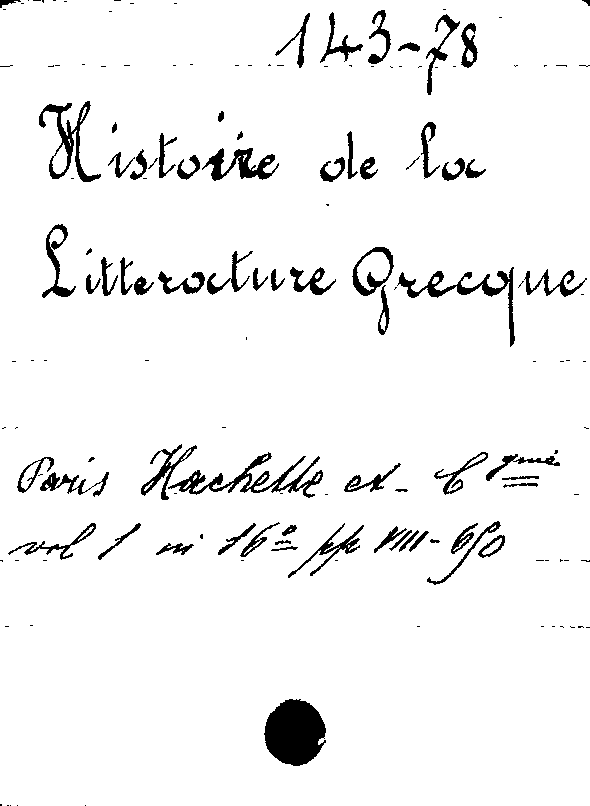 143-78
Histoire de la
Litterature Grecque
Paris Hachette et C gnie
vol 1 in 16º pp VIII-650